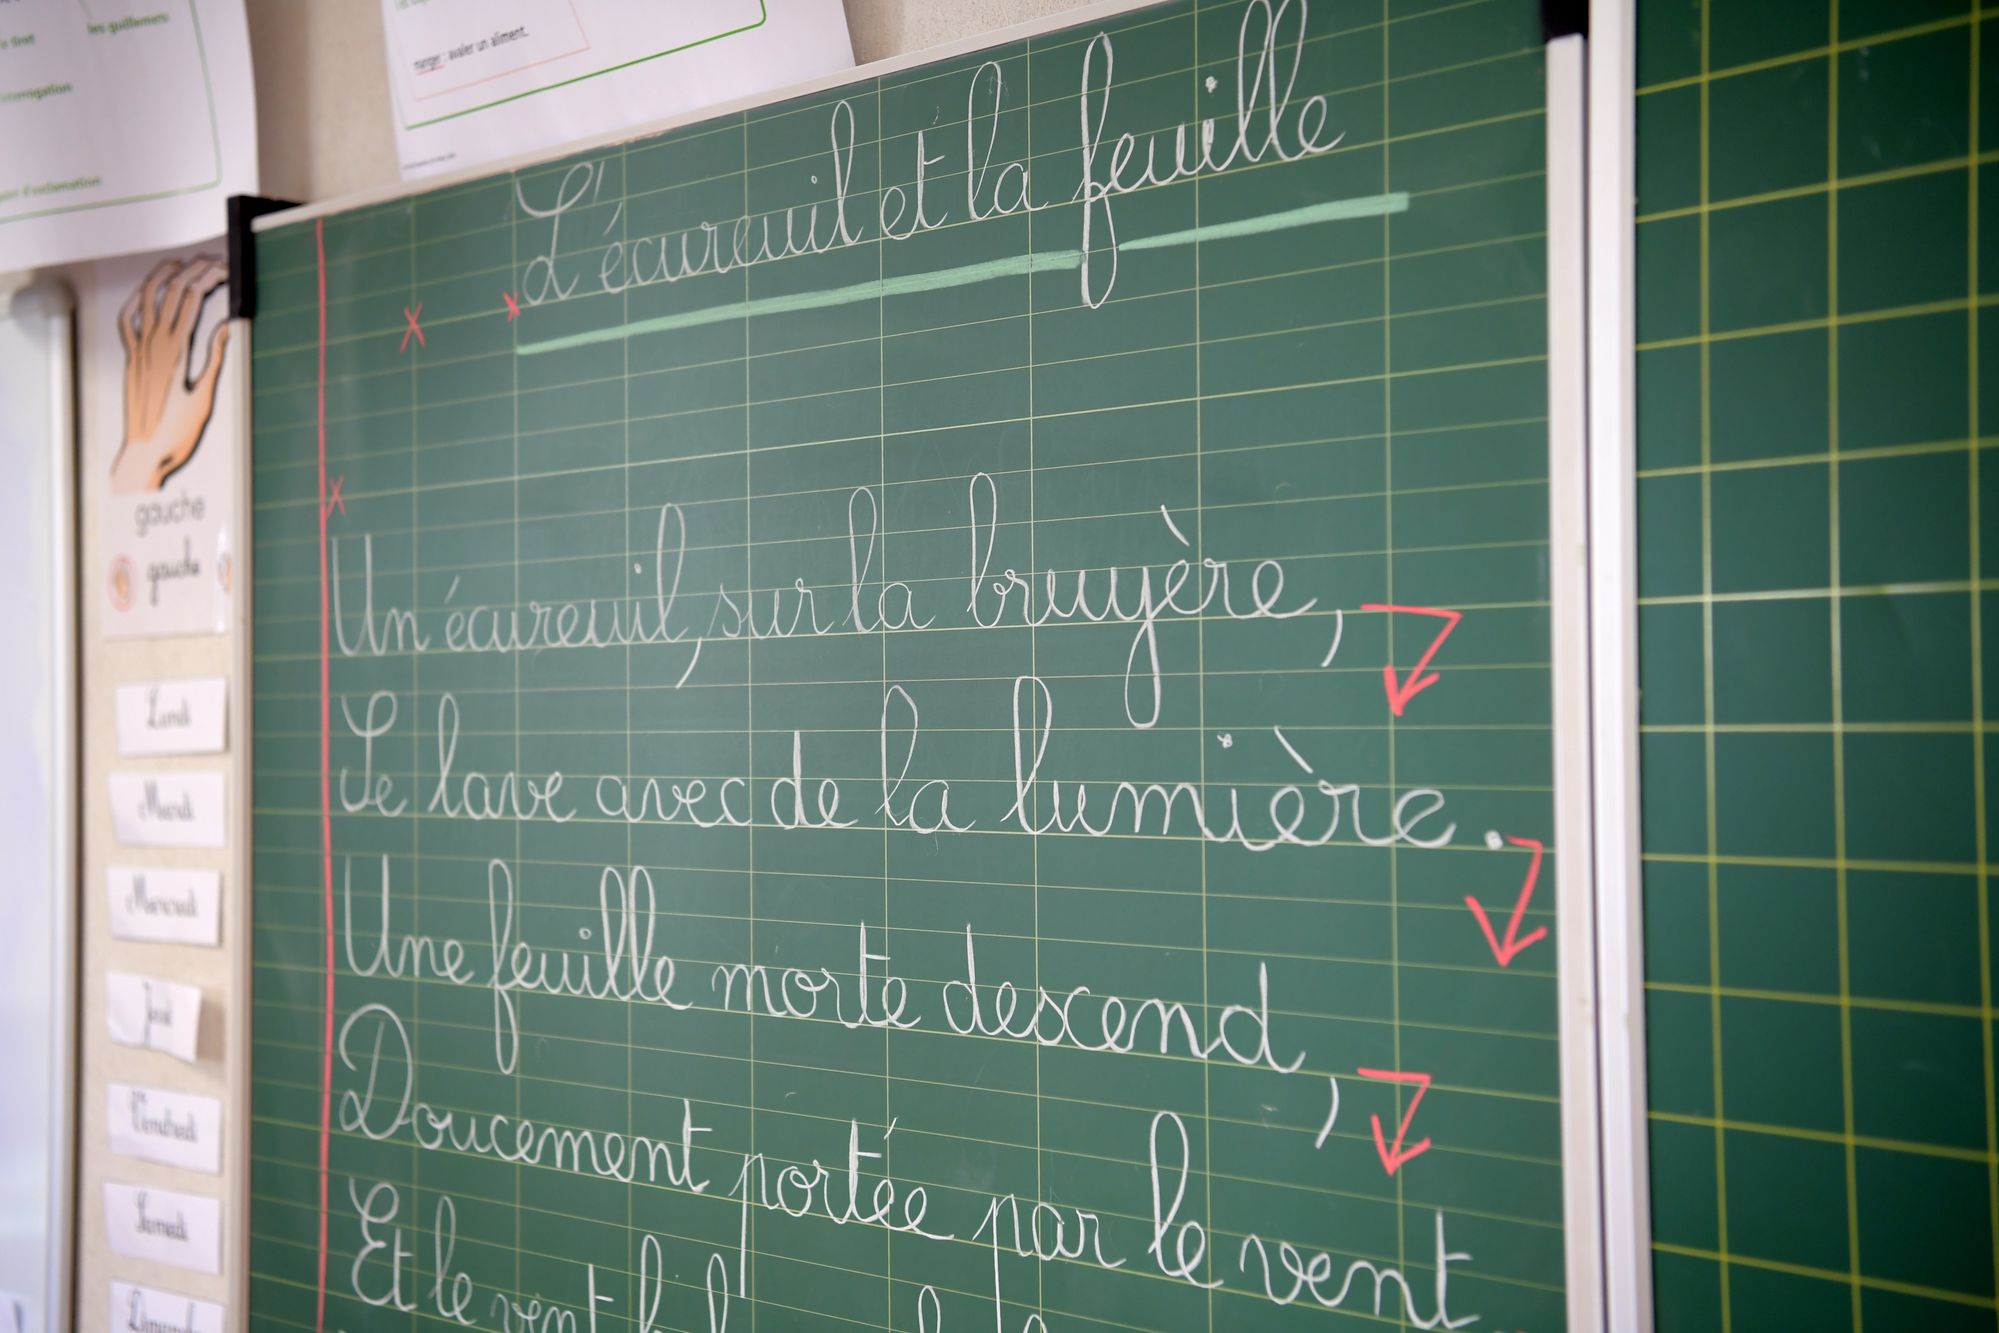 les guillemets
manger : avaler un aliment.
L'écureuil et la feuille
Un écureuil, sur la bruyère,
Se lave avec de la lumière.
Une feuille morte descend,
Doucement portée par le vent
Et le vent
gauche
gauche
Lundi
Mardi
Mercredi
Jeudi
Vendredi
Samedi